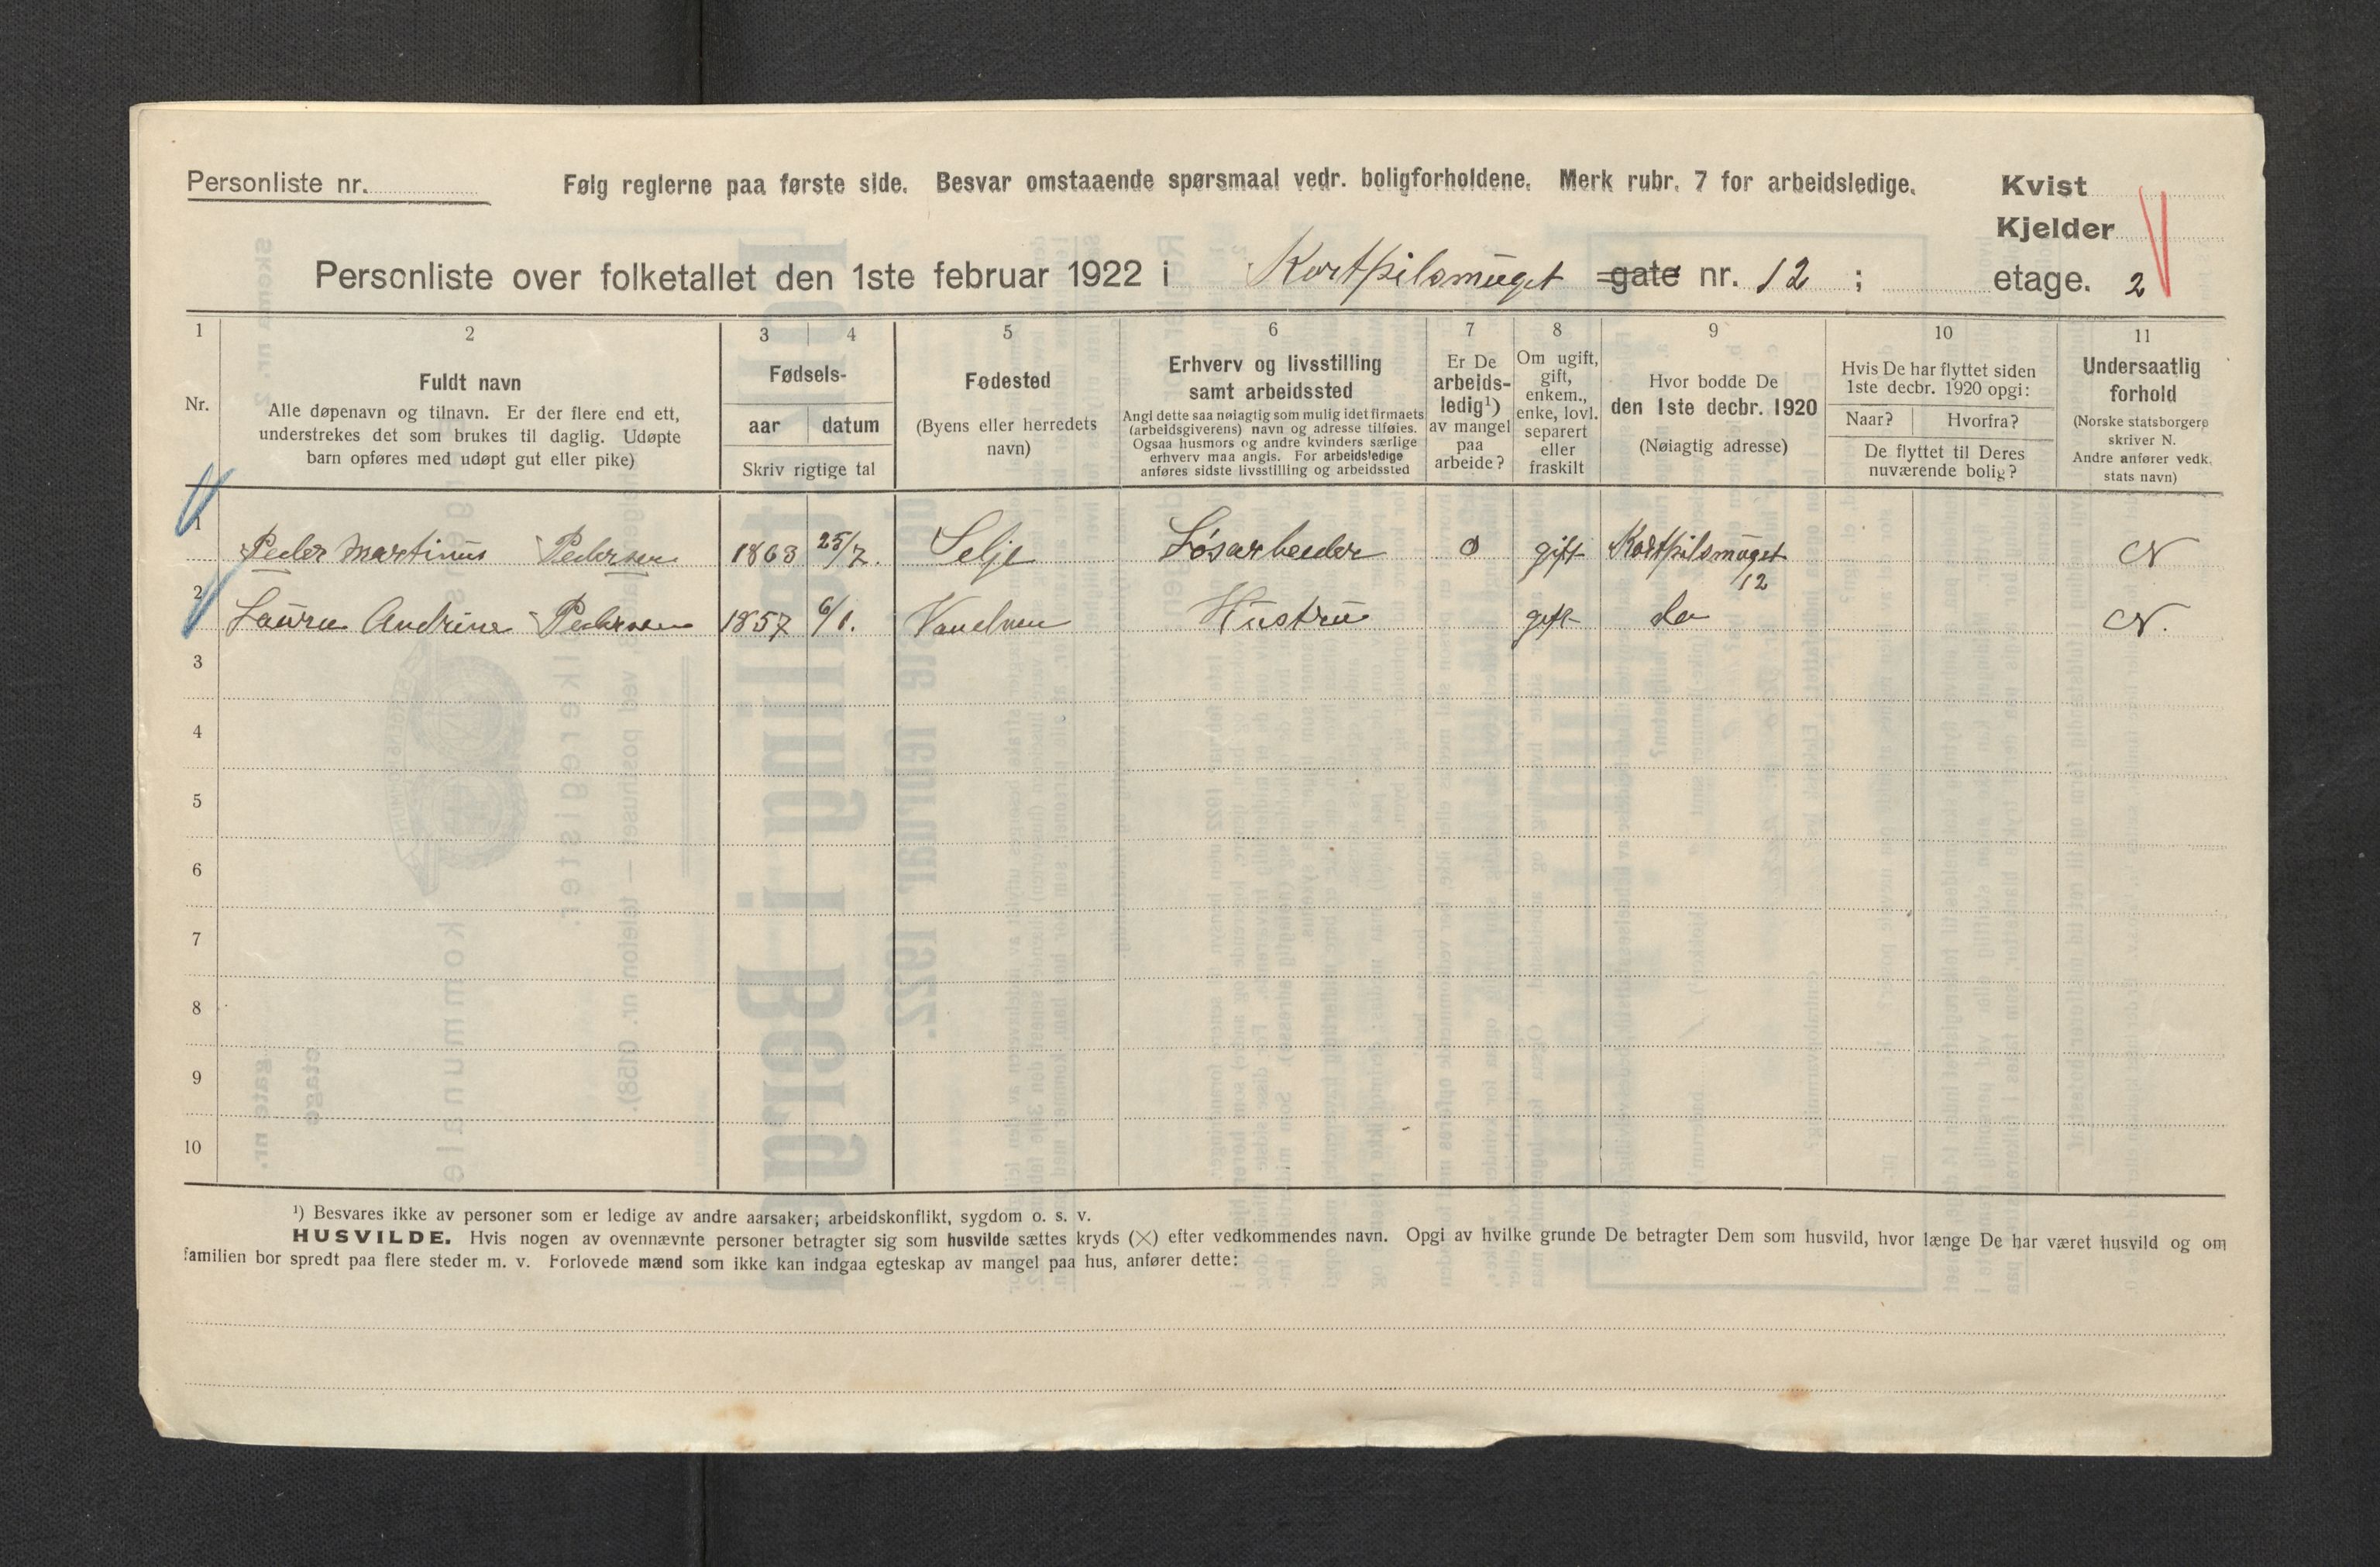 Personliste nr.
Følg reglerne paa første side. Besvar omstaaende spørsmaal vedr. boligforholdene. Merk rubr. 7 for arbeidsledige.
Kvist
Kjelder
Personliste over folketallet den 1ste februar 1922 i Kortpilsmuget gate nr. 12 ; etage. 2
1 2 3 4 5 6 7 8 9 10 11
Nr.
Fuldt navn
Alle døpenavn og tilnavn. Er der flere end ett,
understrekes det som brukes til daglig. Udøpte
barn opføres med udøpt gut eller pike)
Fødsels-
aar datum
Skriv rigtige tal
Fødested
(Byens eller herredets
navn)
Erhverv og livsstilling
samt arbeidssted
Angi dette saa nøiagtig som mulig idet firmaets
(arbeidsgiverens) navn og adresse tilføies.
Ogsaa husmors og andre kvinders særlige
erhverv maa angis. For arbeidsledige
anføres sidste livsstilling og arbeidssted
Er De
arbeids-
ledig¹)
av mangel
paa
arbeide?
Om ugift,
gift,
enkem.,
enke, lovl.
separert
eller
fraskilt
Hvor bodde De
den 1ste decbr. 1920
(Nøiagtig adresse)
Hvis De har flyttet siden
1ste decbr. 1920 opgi:
Naar? Hvorfra?
De flyttet til Deres
nuværende bolig?
Undersaatlig
forhold
(Norske statsborgere
skriver N.
Andre anfører vedk.
stats navn)
1 Peder Martinus Pedersen 1863 25/7. Selje Løsarbeider 0 gift Kortpilsmuget 12 N
2 Laura Andrine Pedersen 1857 6/1. Vanelven Hustru gift do N.
3
4
5
6
7
8
9
10
¹) Besvares ikke av personer som er ledige av andre aarsaker; arbeidskonflikt, sygdom o. s. v.
HUSVILDE. Hvis nogen av ovennævnte personer betragter sig som husvilde sættes kryds (×) efter vedkommendes navn. Opgi av hvilke grunde De betragter Dem som husvild, hvor længe De har været husvild og om
familien bor spredt paa flere steder m. v. Forlovede mænd som ikke kan indgaa egteskap av mangel paa hus, anfører dette: